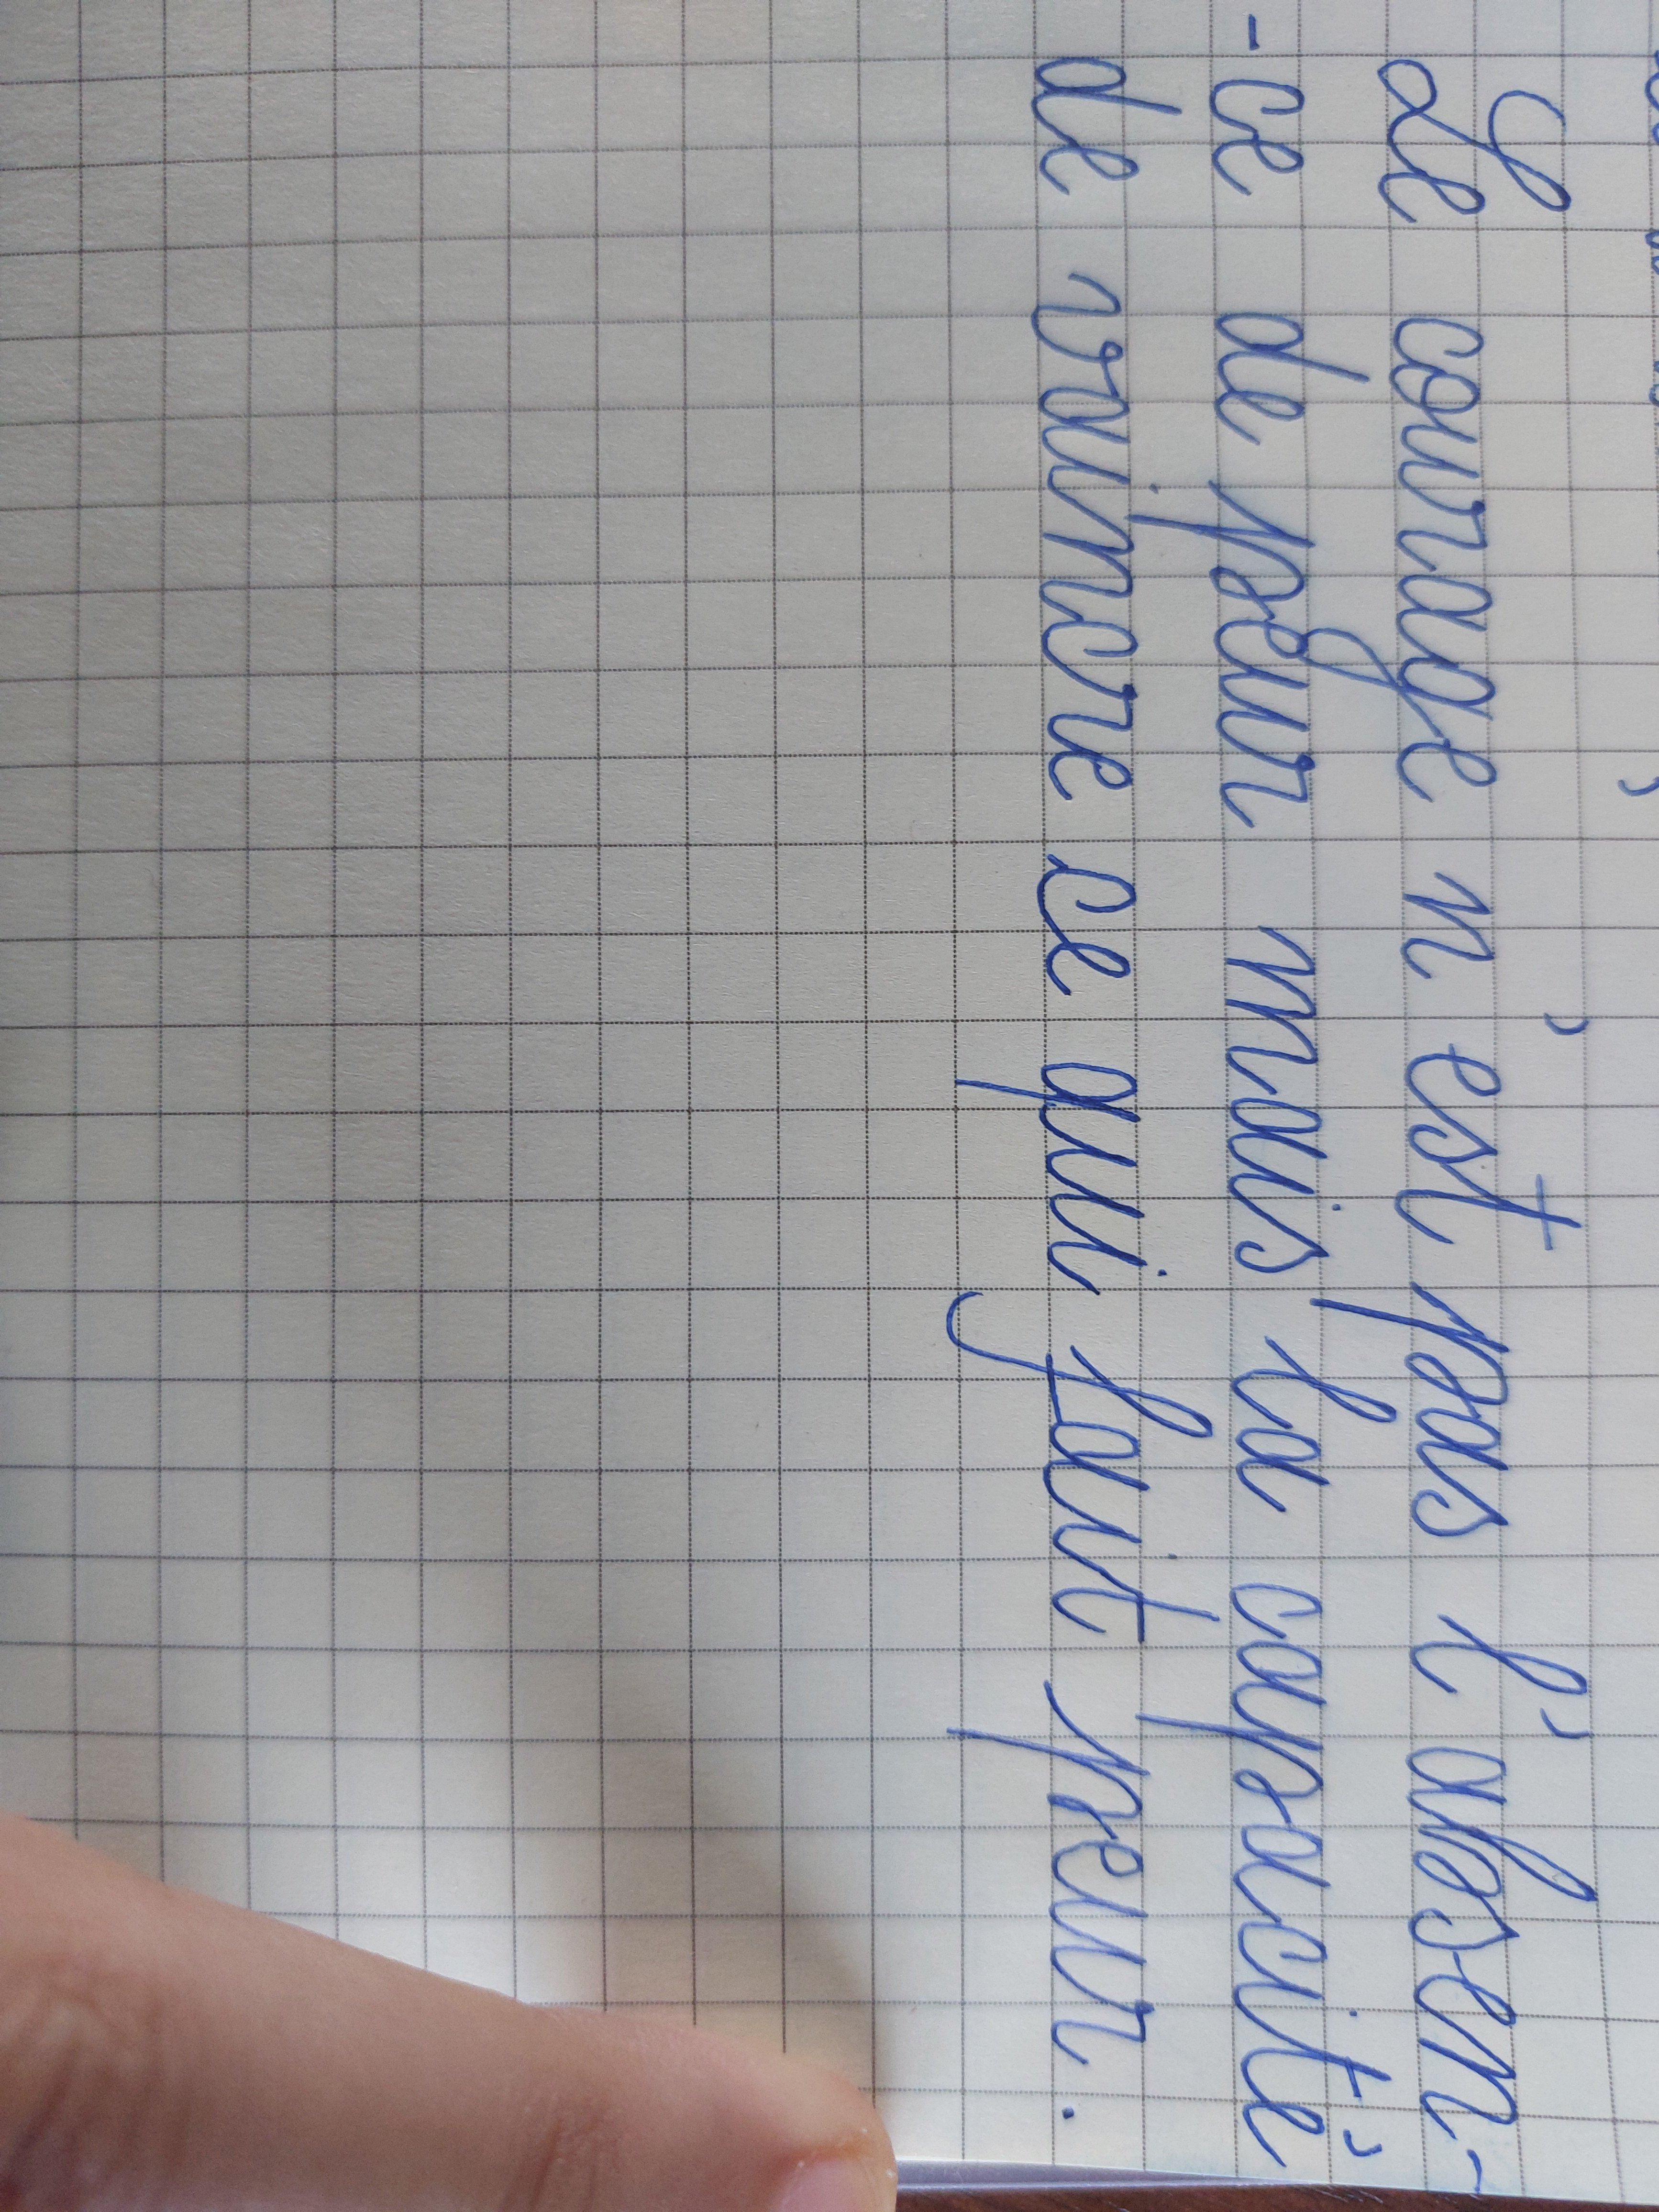 Le courage n'est pas l'absen-
-ce de peur mais la capacité
de vaincre ce qui fait peur.